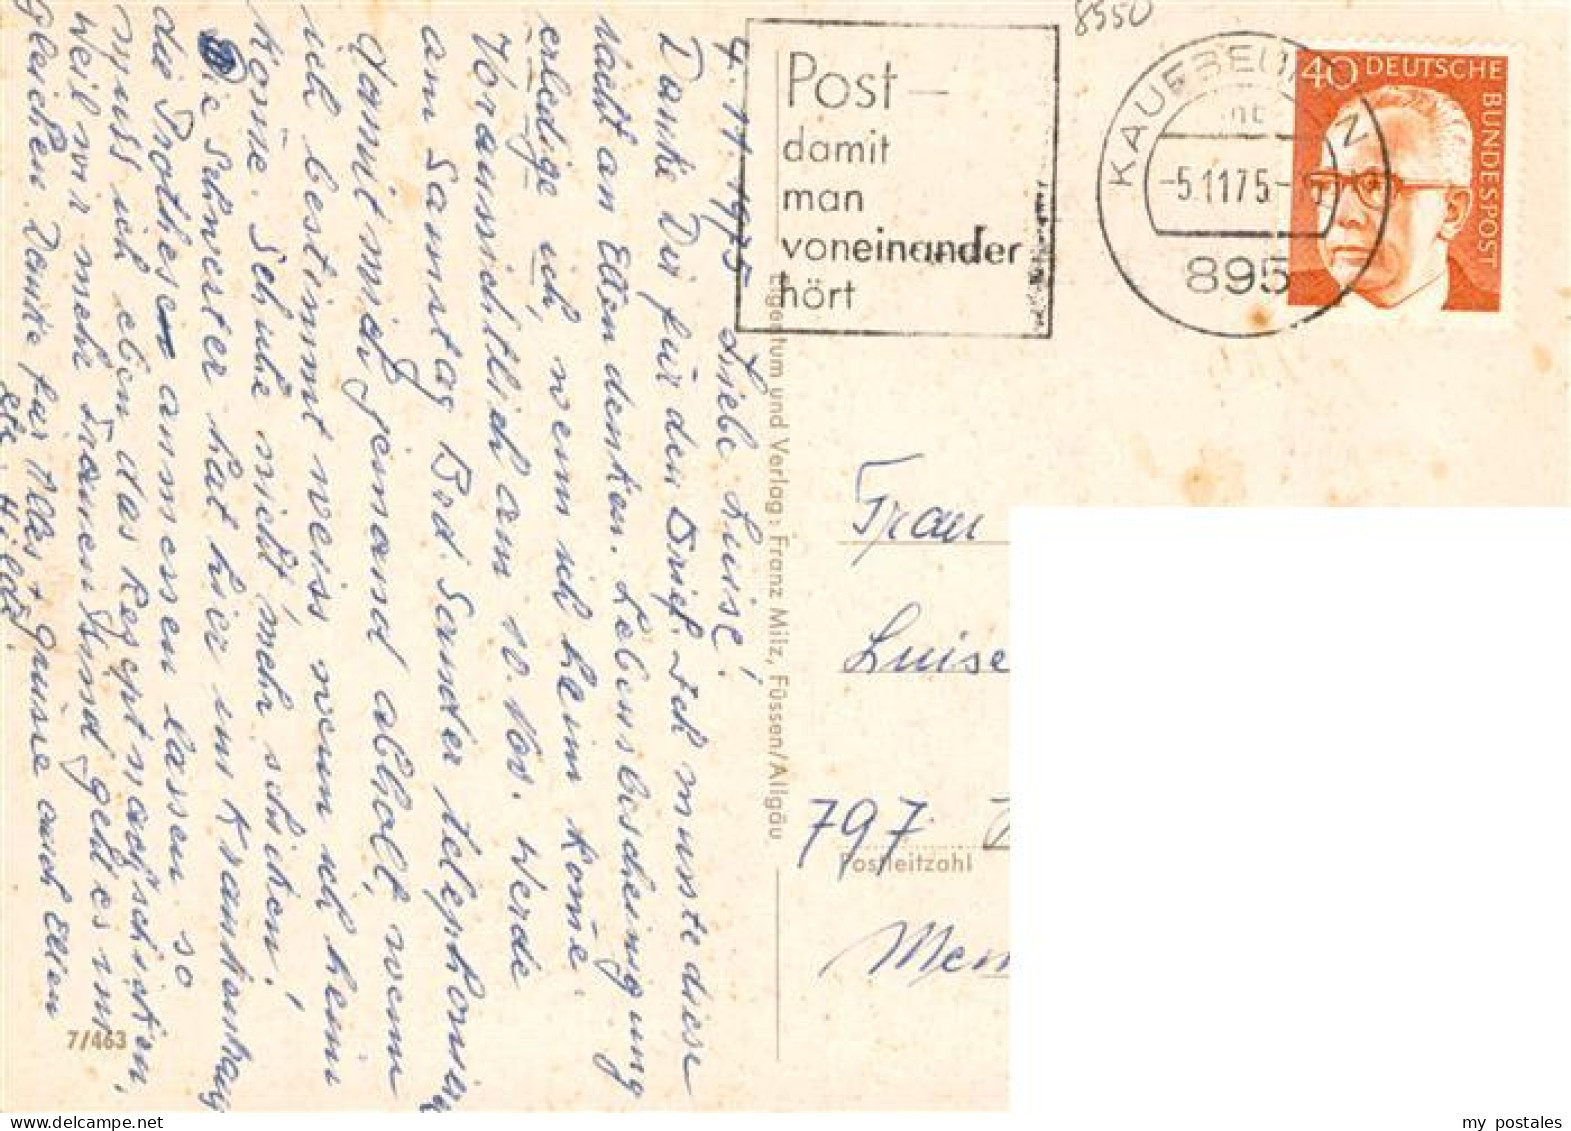 8550
Post –
damit
man
voneinander
hört
KAUFBEUREN
-5.11.75-
895
40 DEUTSCHE
BUNDESPOST
4.11.1975 Liebe Luise!
Danke Dir für den Brief. Ich musste diese
Nacht an Ellen denken. Lebensbescheinigung
erledige ich, wenn ich heim kome.
Voraussichtlich am 10. Nov. Werde
am Samstag Bad Sander telephonieren
damit mich jemand abholt, wenn
ich bestimmt weiss wenn ich heim
kome. Schuhe nicht mehr schicken!
Die Schwester hat hier im Krankenhaus
die Prothesen anmessen lassen so
muss ich eben das Rezept nachschicken,
weil wir mehr Frauen sind geht es im
gleichen. Danke für Alles + Grüsse auch Ellen
Hilde
7/463
Eigentum und Verlag: Franz Milz, Füssen/Allgäu
Frau
Luise
797
Postleitzahl
Mem
my postales
www.delcampe.net